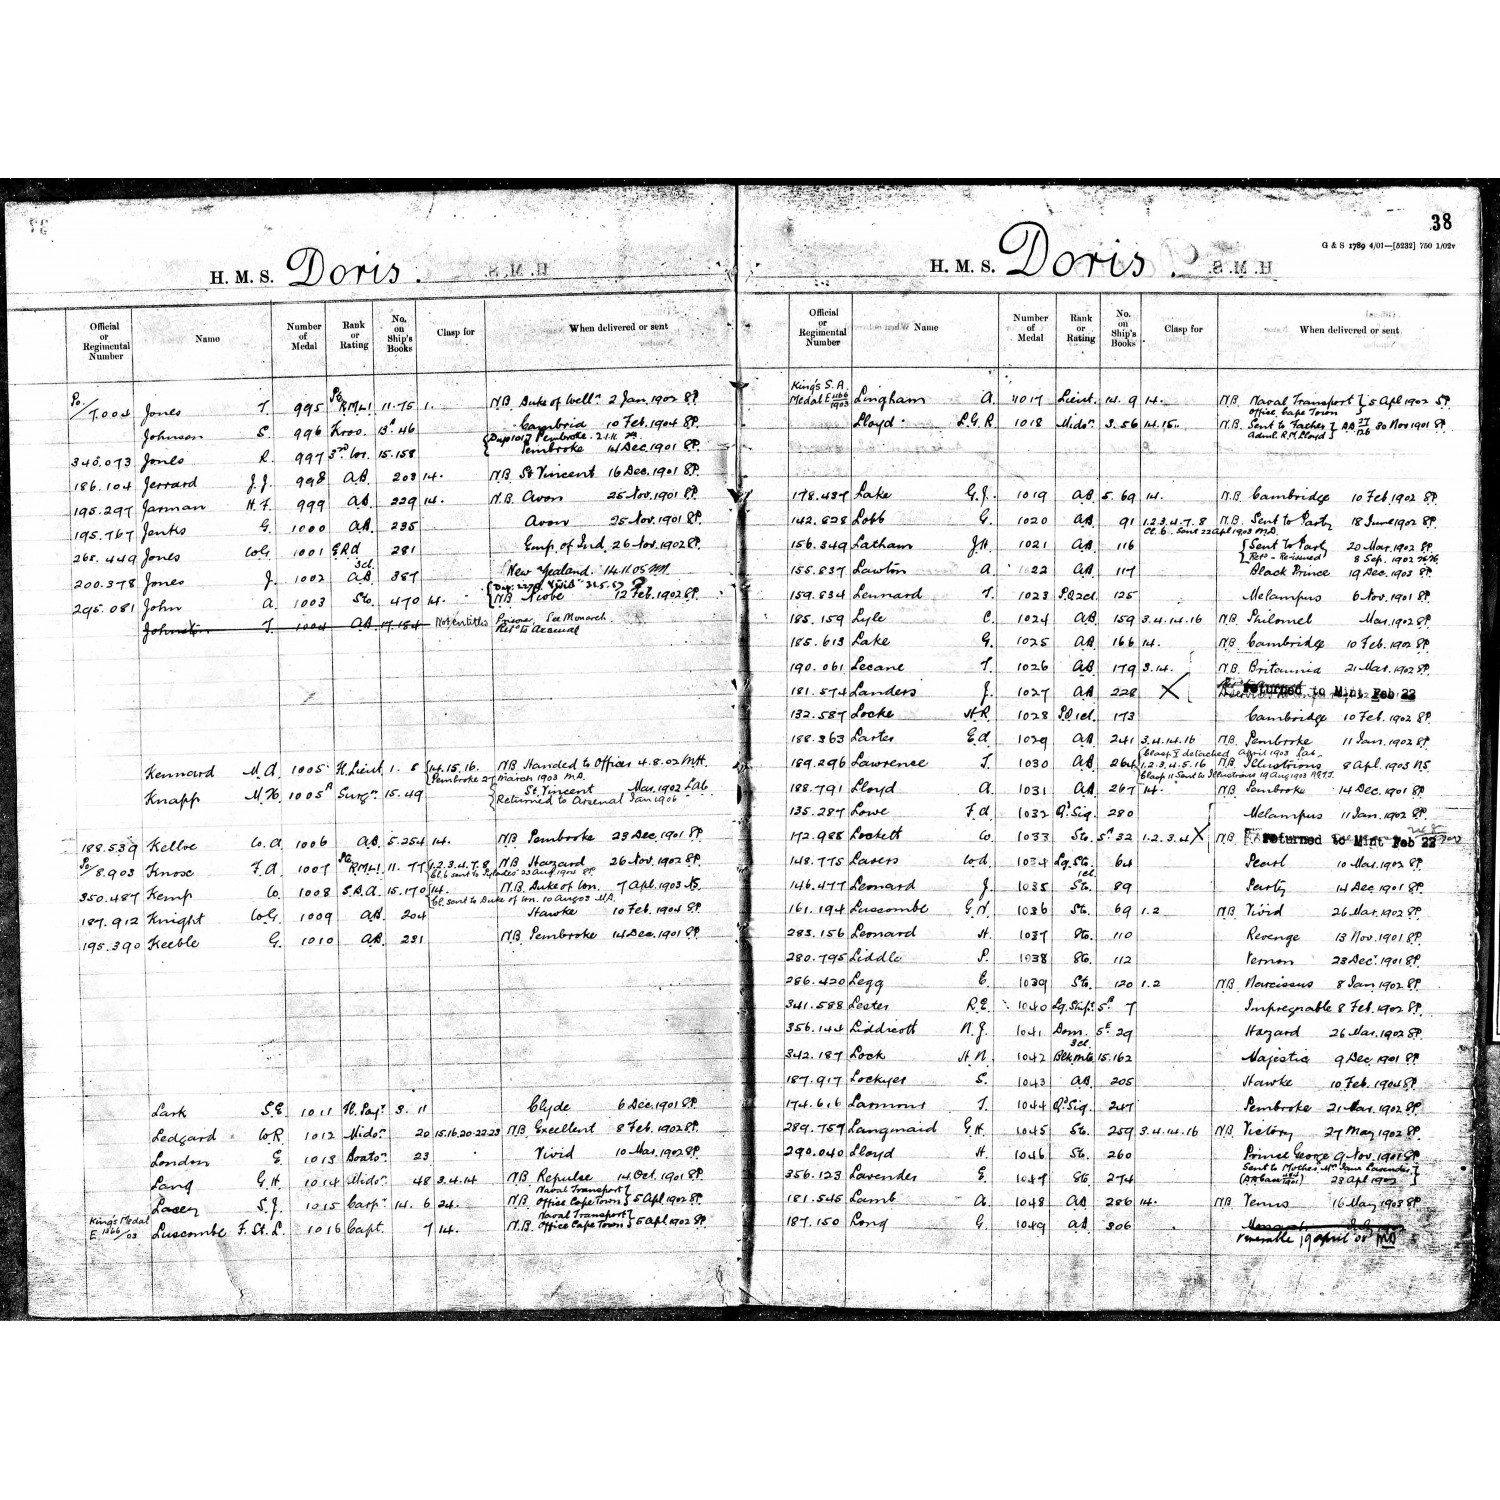 38
G & S 1789 4/01—[5232] 750 1/02v
H. M. S. Doris.
Official or Regimental Number Name Number of Medal Rank or Rating No. on Ship's Books Clasp for When delivered or sent
Po/7.004 Jones T. 995 Pte RMLI 11.75 1. N.B. Duke of Welln 2 Jan. 1902 SP.
Johnson S. 996 Kroo. 13A 46 Cambrid 10 Feb. 1904 SP.
Pembroke 2.1.11
345.073 Jones R. 997 15.158 Pembroke 14 Dec. 1901 SP.
186.104 Jerrard J.J. 998 A.B. 203 14. N.B. St Vincent 16 Dec. 1901 SP.
195.297 Jarman H.F. 999 A.B. 229 14. N.B. Avon 25 Nov. 1901 SP.
195.767 Jenks G. 1000 A.B. 235 Avon 25 Nov. 1901 SP.
265.449 Jones W.G. 1001 E.R.A 281 Emp. of Ind. 26 Nov. 1902 SP.
3cl.
200.378 Jones J. 1002 A.B. 387 New Zealand. 14.11.05
295.081 John A. 1003 Sto. 470 14. N.B. Niobe 12 Feb. 1902 SP.
Johnston T. 1004 A.B. 17.154 Not entitled See Monarch
Retd to Arsenal
Kennard M.A. 1005 Fl. Lieut. 1. 5 14.15.16. N.B. Handed to Officer 4.8.02 M.H.
Pembroke 27 March 1903 M.A.
Knapp M.H. 1005A Surgn 15.49 St. Vincent Mar. 1902 Lab
Returned to Arsenal Jan 1906
188.539 Kelloe W.A. 1006 A.B. 5.254 14. N.B. Pembroke 23 Dec. 1901 SP.
Po/8.903 Knose F.A. 1007 Pte RMLI 11.77 1.2.3.4.7.8 N.B. Hazard 26 Nov. 1902 SP.
350.487 Kemp W. 1008 S.B.A. 15.170 14. N.B. Duke of Wn. 7 Apl. 1903
Cl. sent to Duke of Wn. 10 Aug 03 M.A.
187.912 Knight W.G. 1009 A.B. 204 Hawke 10 Feb. 1904 SP.
195.390 Keeble G. 1010 A.B. 231 N.B. Pembroke 14 Dec. 1901 SP.
Lark S.E. 1011 Fl. Payr 3. 11 Clyde 6 Dec. 1901 SP.
Ledgard W.R. 1012 Midn 20 15.16.20.22.23 N.B. Excellent 8 Feb. 1902 SP.
London E. 1013 Boatn 23 Vivid 10 Mar. 1902 SP.
Lang G.H. 1014 Midn 48 3.4.14 N.B. Repulse 14 Oct. 1901 SP.
Lacey S.J. 1015 Carpr 14. 6 24. N.B. Naval Transport Office Cape Town 5 Apl 1902 SP.
King's Medal E 1366/03 Luscombe F. St. L. 1016 Capt. 7 14. N.B. Naval Transport Office Cape Town 5 Apl. 1902 SP.
H. M. S. Doris.
Official or Regimental Number Name Number of Medal Rank or Rating No. on Ship's Books Clasp for When delivered or sent
King's S.A. Medal E 1366/1903 Lingham A. 1017 Lieut. 14. 9 14. N.B. Naval Transport Office, Cape Town 5 Apl 1902 SP.
Lloyd L.G.R. 1018 Midn. 3.56 14.15. N.B. Sent to Father Adml. R.M. Lloyd 30 Nov 1901 SP.
178.437 Lake G.J. 1019 A.B. 5. 69 14. N.B. Cambridge 10 Feb. 1902 SP.
142.828 Lobb G. 1020 A.B. 91 1.2.3.4.7.8 N.B. Sent to Party 18 June 1902 SP.
Cl. 6. Sent 22 Apl 1903 M.A.
156.349 Latham J.H. 1021 A.B. 116 Sent to Party 20 Mar. 1902 SP.
Retd - Re-issued 8 Sep. 1902
155.837 Lawton A. 1022 A.B. 117 Black Prince 19 Dec. 1903 SP.
159.834 Lennard T. 1023 P.O.2cl. 125 Melampus 6 Nov. 1901 SP.
185.159 Lyle C. 1024 A.B. 159 3.4.14.16 N.B. Philomel Mar. 1902 SP.
185.613 Lake G. 1025 A.B. 166 14. N.B. Cambridge 10 Feb. 1902 SP.
190.061 Lecane T. 1026 A.B. 179 3.14. N.B. Britannia 21 Mar. 1902 SP.
181.574 Landers J. 1027 A.B. 228 X returned to Mint Feb 22
132.587 Locke H.R. 1028 P.O.1cl. 173 Cambridge 10 Feb. 1902 SP.
188.363 Larter E.A. 1029 A.B. 241 3.4.14.16 N.B. Pembroke 11 Jan. 1902 SP.
Clasp detached April 1903 Lab
189.296 Lawrence T. 1030 A.B. 264 1.2.3.4.5.16 N.B. Illustrious 8 Apl. 1903
Clasp 11 Sent to Illustrious 19 Aug 1903
188.791 Lloyd A. 1031 A.B. 267 14. N.B. Pembroke 14 Dec. 1901 SP.
135.287 Lowe F.A. 1032 Qd Sig. 280 Melampus 11 Jan. 1902 SP.
172.988 Lockett W. 1033 Sto. 5A 32 1.2.3.4 X N.B. returned to Mint Feb 22
148.775 Lasers W.A. 1034 Lg. Sto. 1cl 64 Pearl 10 Mar. 1902 SP.
146.477 Leonard J. 1035 Sto. 89 Party 14 Dec 1901 SP.
161.194 Luscombe G.N. 1036 Sto. 69 1.2 N.B. Vivid 26 Mar. 1902 SP.
283.156 Leonard H. 1037 Sto. 110 Revenge 13 Nov. 1901 SP.
280.795 Liddle P. 1038 Sto. 112 Vernon 23 Dec. 1901 SP.
286.420 Legg E. 1039 Sto. 120 1.2 N.B. Narcissus 8 Jan. 1902 SP.
341.588 Lester R.E. 1040 Lg. Shipt 5A 7 Impregnable 8 Feb. 1902 SP.
356.144 Liddicott N.J. 1041 Dom. 3cl. 5E 29 Hazard 26 Mar. 1902 SP.
342.187 Lock H.N. 1042 Blk. mte 15.162 Majestic 9 Dec 1901 SP.
187.917 Lockyer S. 1043 A.B. 205 Hawke 10 Feb. 1904 SP.
174.616 Larmons T. 1044 Qd Sig. 247 Pembroke 21 Mar. 1902 SP.
289.759 Langmaid G.H. 1045 Sto. 259 3.4.14.16 N.B. Victory 27 May 1902 SP.
290.040 Lloyd H. 1046 Sto. 260 Prince George 9 Nov. 1901 SP.
356.123 Lavender E. 1047 Sto. 274 Sent to Mother Mrs Jane Lavender 23 Apl 1902
181.545 Lamb A. 1048 A.B. 286 14. N.B. Venus 16 May 1903 SP.
187.150 Long G. 1049 A.B. 306 Monarch July 1902
Venerable 19 April 08